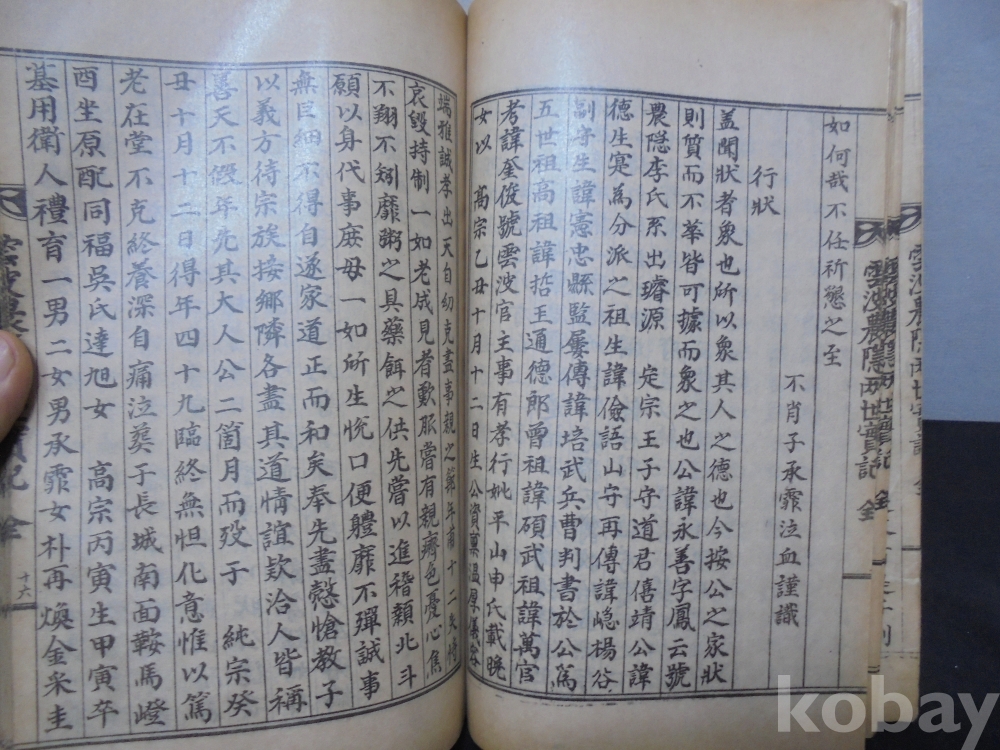 如何哉不任祈懇之至
不肖子承霏泣血謹識
行狀
盖聞狀者象也所以象其人之德也今按公之家狀
則質而不華皆可據而象之也公諱永善字鳳云號
農隱李氏系出璿源 定宗王子守道君僖靖公諱
德生寔爲分派之祖生諱儉語山守再傳諱嵦楊谷
副守生諱憲忠縣監屢傳諱培武兵曹判書於公爲
五世祖高祖諱哲主通德郎曾祖諱碩武祖諱萬官
考諱奎俊號雲波官主事有孝行妣平山申氏載晩
女以 高宗乙丑十月十二日生公資稟溫厚儀容
端雅誠孝出天自幼克盡事親之節年甫十二失恃
哀毁持制一如老成見者歎服嘗有親癠色憂心焦
不翔不矧靡粥之具藥餌之供先嘗以進稽顙北斗
願以身代事庶母一如所生悅口便軆靡不殫誠事
無巨細不得自遂家道正而和矣奉先盡慤愴教子
以義方待宗族接鄉隣各盡其道情誼欵洽人皆稱
善天不假年先其大人公二箇月而殁于 純宗癸
丑十月十二日得年四十九臨終無怛化意惟以篤
老在堂不克終養深自痛泣葬于長城南面鞍馬嶝
酉坐原配同福吳氏達旭女 高宗丙寅生甲寅卒
墓用衛人禮育一男二女男承霏女朴再煥金采圭
十六
雲波農隱兩世實記 全
雲波農隱兩世實記 全
kobay